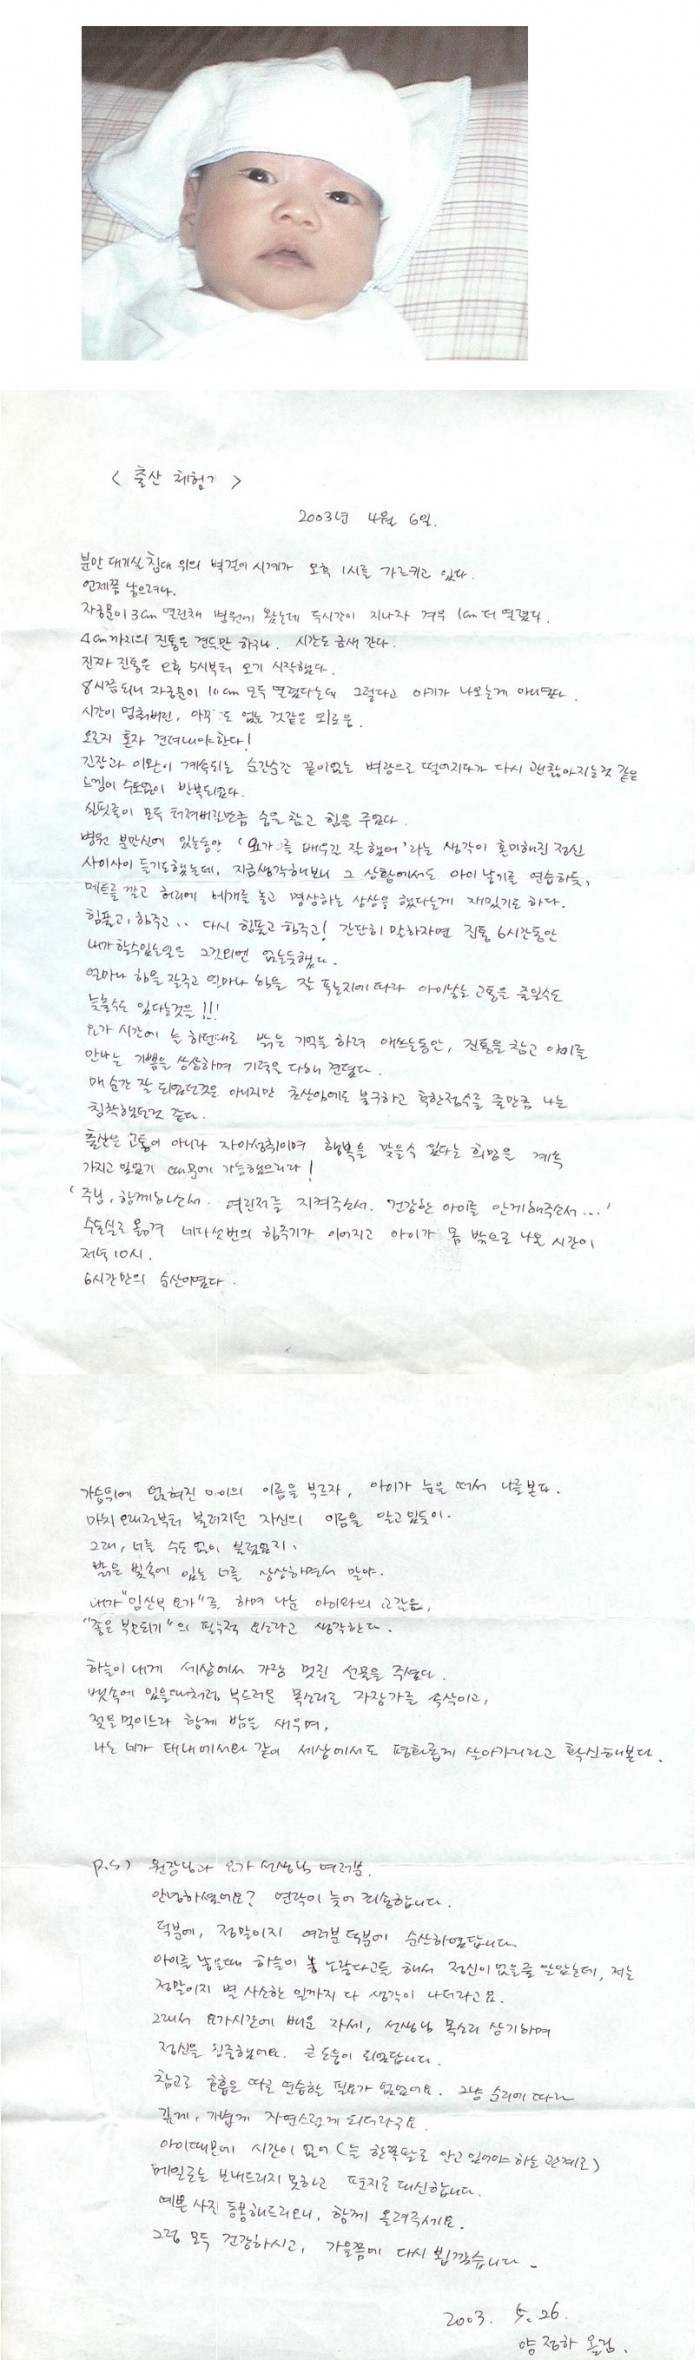 < 출산 체험기 >
2003년 4월 6일.
분만 대기실 침대 위의 벽걸이 시계가 오후 1시를 가르키고 있다.
언제쯤 낳으려나.
자궁문이 3cm 열린채 병원에 왔는데 두시간이 지나자 겨우 1cm 더 열렸다.
4cm까지의 진통은 견딜만 하구나. 시간도 금새 간다.
진짜 진통은 오후 5시부터 오기 시작했다.
8시쯤되니 자궁문이 10cm 모두 열렸다는데 그렇다고 아기가 나오는게 아니였다.
시간이 멈춰버린, 아무도 없는 것같은 외로움.
오로지 혼자 견뎌내야한다!
긴장과 이완이 계속되는 순간순간 끝이없는 벼랑으로 떨어지다가 다시 괜찮아지는것 같은
느낌이 수도없이 반복되었다.
실핏줄이 모두 터져버릴만큼 숨을 참고 힘을 주었다.
병원 분만실에 있는동안 '요가를 배우긴 잘 했어' 라는 생각이 혼미해진 정신
사이사이 들기도했는데, 지금생각해보니 그 상황에서도 아이 낳기를 연습하듯,
메트를 깔고 허리에 베개를 놓고 명상하는 상상을 했다는게 재밌기도 하다.
힘풀고, 힘주고.. 다시 힘풀고 힘주고! 간단히 말하자면 진통 6시간동안
내가 할수있는일은 그것외엔 없는듯했다.
얼마나 힘을 잘주고 얼마나 힘을 잘 푸는지에 따라 아이낳는 고통을 줄일수도
늦출수도 있다는것을!!!
요가 시간에 늘 하던대로 밝은 기억을 하려 애쓰는동안, 진통을 참고 아이를
만나는 기쁨을 상상하며 기력을 다해 견뎠다.
매 순간 잘 되었던것은 아니지만 초산임에도 불구하고 후한점수를 줄만큼 나는
침착했던것 같다.
출산은 고통이 아니라 자아성취이며 행복을 맞을수 있다는 희망을 계속
가지고 있었기 때문에 가능했으리라!
'주님, 함께하소서. 여린저를 지켜주소서. 건강한 아이를 안게해주소서...'
수술실로 옮겨 네다섯번의 힘주기가 이어지고 아이가 몸 밖으로 나온 시간이
저녁 10시.
6시간만의 순산이였다.
가슴위에 얹혀진 아이의 이름을 부르자, 아이가 눈을 떠서 나를본다.
마치 오래전부터 불려지던 자신의 이름을 알고 있듯이.
그래, 너를 수도 없이 불렀었지.
밝은 빛속에 있는 너를 상상하면서 말야.
내가 "임산부 요가"를 하며 나눈 아이와의 교감은,
"좋은 부모되기"의 필수적 요소라고 생각한다.
하늘이 내게 세상에서 가장 멋진 선물을 주셨다.
뱃속에 있을때처럼 부드러운 목소리로 자장가를 속삭이고,
젖을 먹이느라 함께 밤을 새우며,
나는 네가 태내에서와 같이 세상에서도 평화롭게 살아가리라고 확신해본다.
P.S) 원장님과 요가 선생님 여러분.
안녕하셨어요? 연락이 늦어 죄송합니다.
덕분에, 정말이지 여러분 덕분에 순산하였답니다.
아이를 낳을때 하늘이 노랗다고들 해서 정신이 없을줄 알았는데, 저는
정말이지 별 사소한 일까지 다 생각이 나더라구요.
그래서 요가시간에 배운 자세, 선생님 목소리 상기하며
정신을 집중했어요. 큰 도움이 되었답니다.
참고로 호흡은 따로 연습할 필요가 없었어요. 그냥 순리에 따라
깊게, 가볍게 자연스럽게 되더라구요.
아이때문에 시간이 없어 (늘 한쪽팔로 안고 있어야 하는 관계로)
메일로는 보내드리지 못하고 편지로 대신합니다.
예쁜 사진 동봉해드리오니, 함께 올려주세요.
그럼 모두 건강하시고, 가을쯤에 다시 뵙겠습니다.
2003. 5. 26.
양정하 올림.